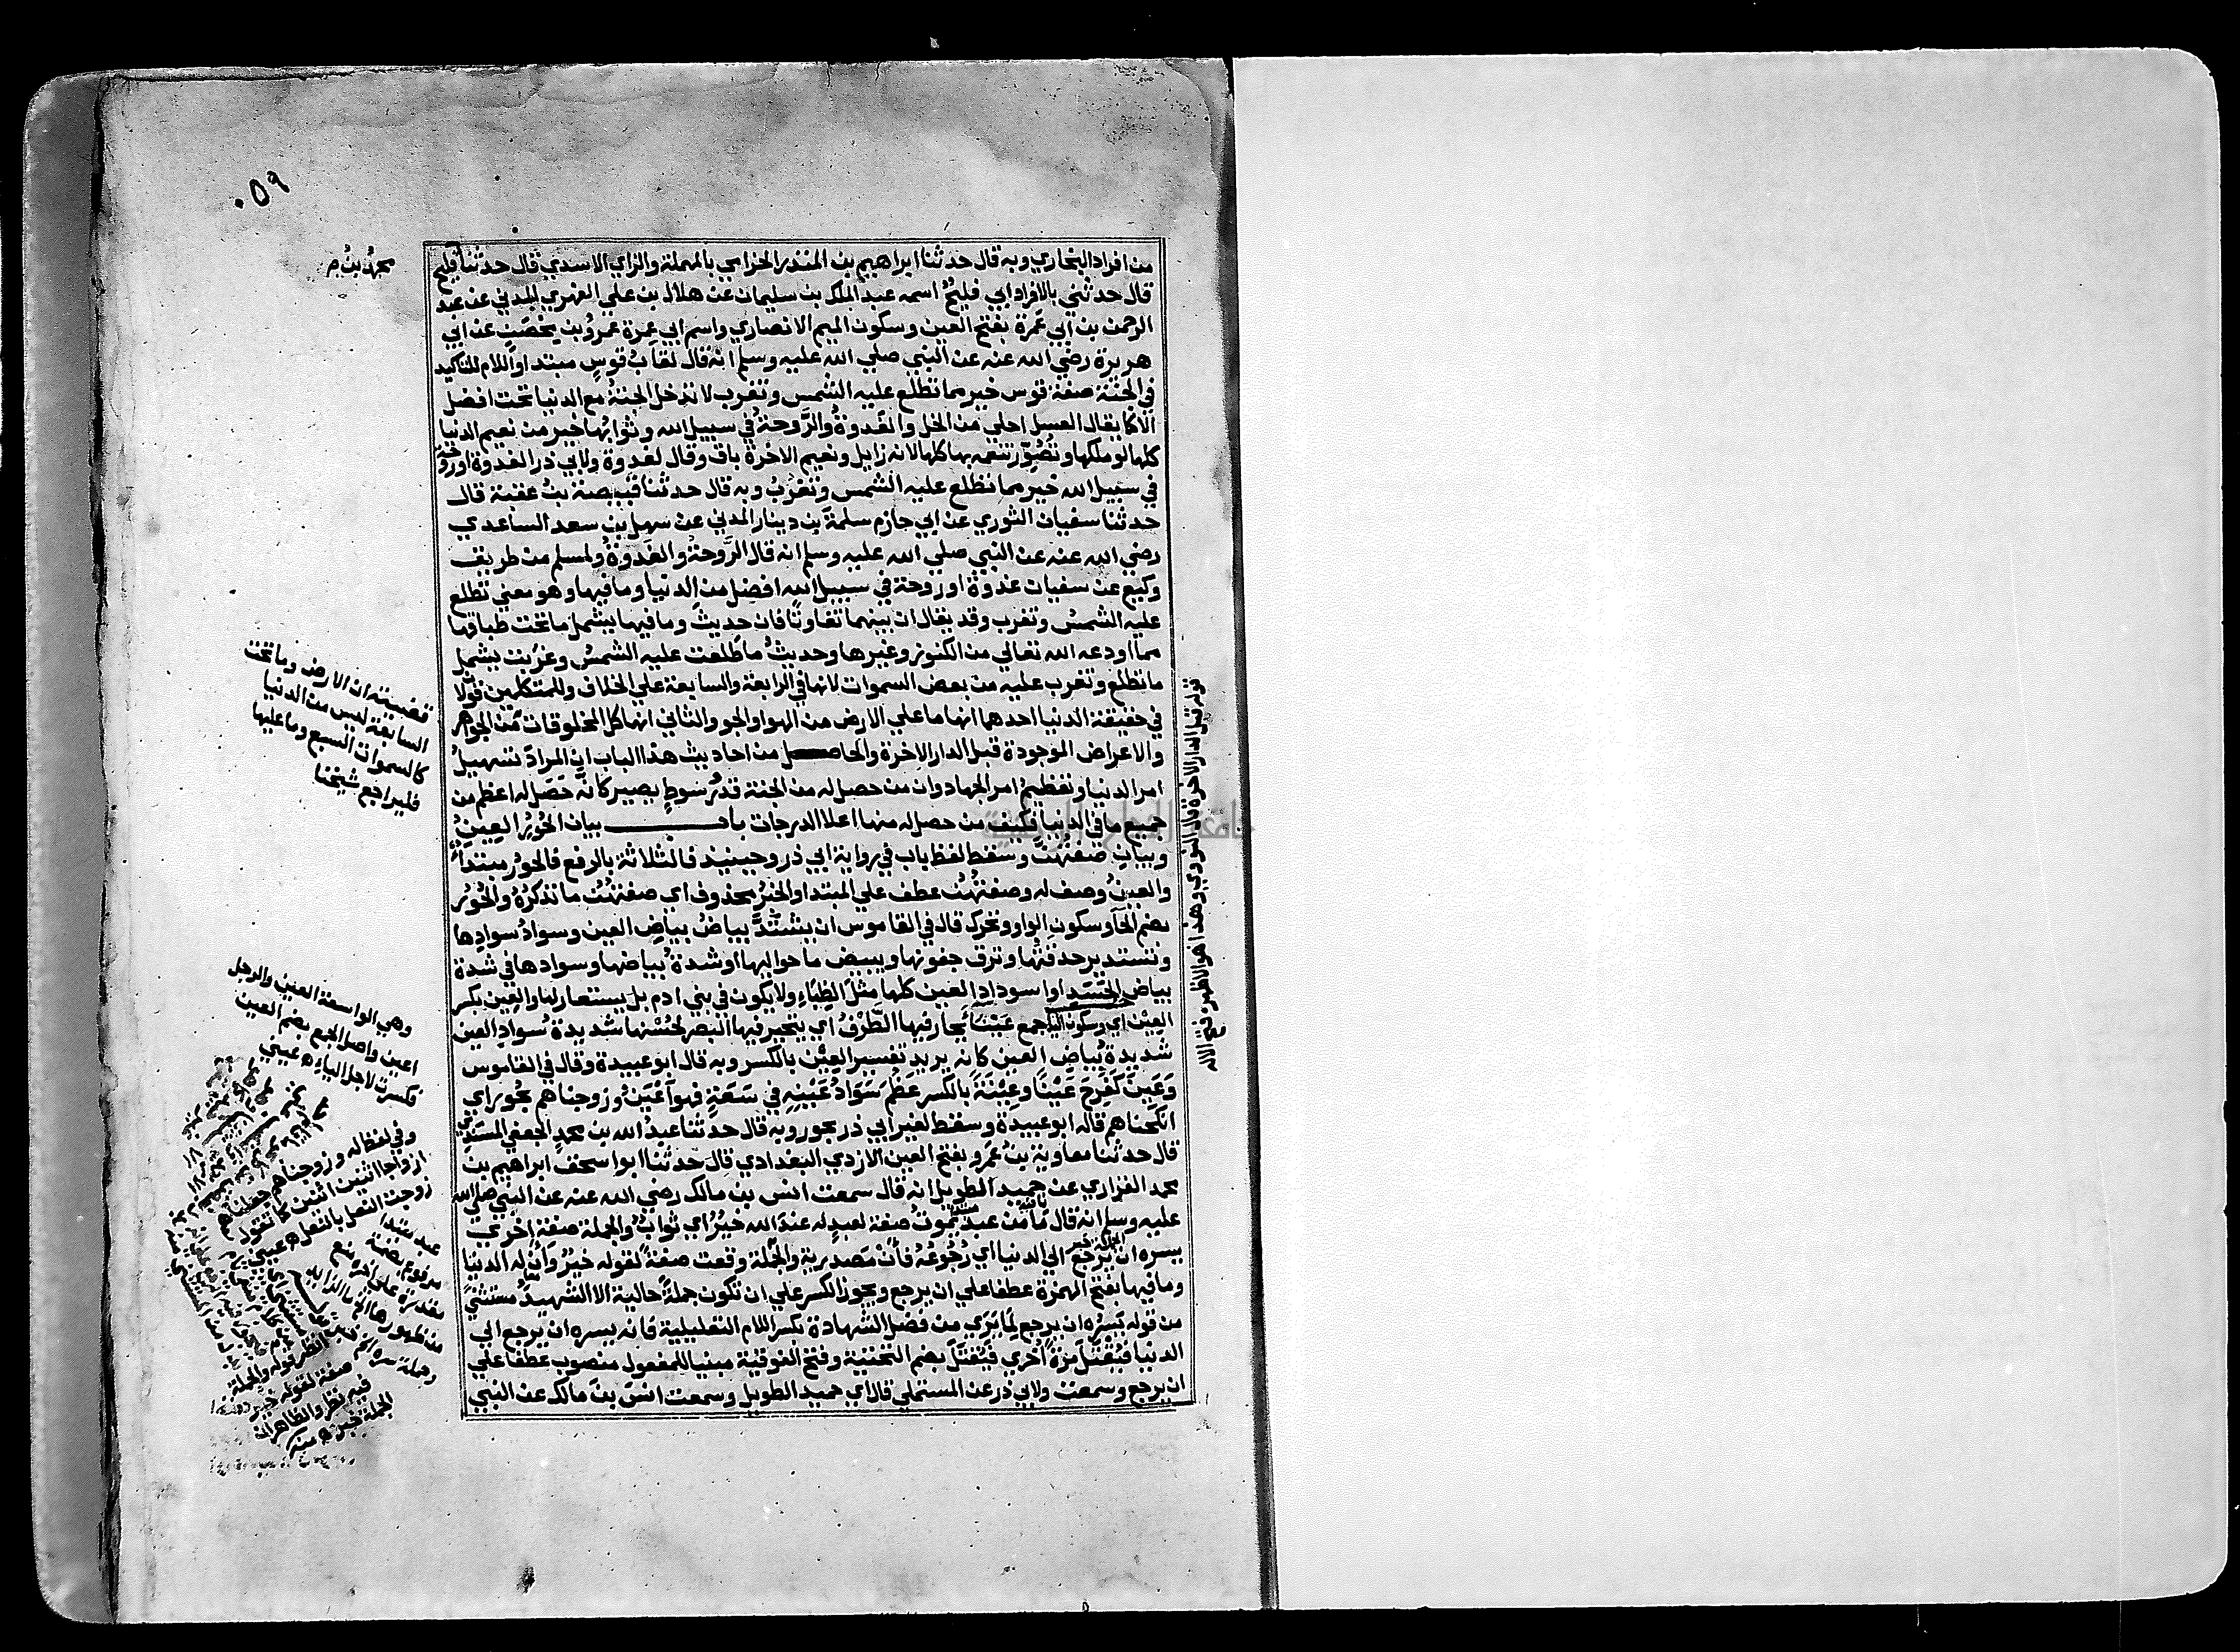 ٠٥٩
من افراد البخاري وبه قال حدثنا ابراهيم بن المنذر الحزامي بالمهملة والزاي الاسدي قال حدثنا فليح
قال حدثني بالافراد ابي فليحٌ اسمه عبد الملك بن سليمان عن هلال بن علي الفهري المدني عن عبد
الرحمن بن ابي عَمرة بفتح العين وسكون الميم الانصاري واسم ابي عمرة عمرُو بن محصنٍ عن ابي
هريرة رضي الله عنه عن النبي صلي الله عليه وسلم انه قال لقابُ قوسٍ مبتدا واللام للتاكيد
في الجنة صفة قوس خير مما تطلع عليه الشمس وتغرب لا تدخل الجنةُ مع الدنيا تحت افضل
الا كما يقال العسل احلي من الخل والغَدوةُ والرَّوحةُ في سبيل الله وثوابُها خير من نعيم الدنيا
كلها لو ملكها وتُصُوِّر تنعمه بها كلها لانه زايل ونعيم الاخرة باق وقال لغدوة ولابي ذر الغدوة او روحة
في سبيل الله خير مما تطلع عليه الشمس وتغرُبُ وبه قال حدثنا قَبيصة بنُ عقبة قال
حدثنا سفيان الثوري عن ابي حازم سلمةَ بن دينار المدني عن سهل بن سعد الساعدي
رضي الله عنه عن النبي صلي الله عليه وسلم انه قال الرَّوحةُ والغَدوةُ ولمسلم من طريق
وكيع عن سفيان غدوة او روحة في سبيل الله افضل من الدنيا وما فيها وهو معني تطلع
عليه الشمسُ وتغرب وقد يقال ان بينهما تفاوتًا فان حديثَ وما فيها يشمل ما تحت طباقها
مما اودعه الله تعالي من الكنوز وغيرها وحديثُ ما طلعت عليه الشمسُ وغرُبت يشمل
ما تطلع وتغرب عليه من بعض السموات لانها في الرابعة والسابعة علي الخلاف وللمتكلمين قولان
في حقيقة الدنيا احدهما انها ما علي الارض من الهوا والجو والثاني انها كل المخلوقات من الجواهر
والاعراض الموجودة قبل الدار الاخرة والحاصل من احاديث هذا الباب ان المرادَ تسهيلُ
امر الدنيا وتعظيمُ امر الجهاد وان من حصل له من الجنة قدْرُ سَوطٍ يصير كانه حَصَل له اعظم من
جميع ما في الدنيا فكيف من حصل له منها اعلا الدرجات باب بيان الحُورُ العِينُ
وبيانِ صفتُهنَّ وسقط لفظ باب في رواية ابي ذر وحينيذ فالثلاثة بالرفع فالحورُ مبتدأ
والعينُ وصف له وصفتهُن عطف علي المبتدا والخبرُ محذوف اي صفتهُن ما تذكرُهُ والحُورُ
بضم الحآ وسكون الواو وتحرك قال في القاموس ان يشتَدَّ بياضُ بياضِ العين وسوادُ سوادِها
وتستدير حدقتُها وترق جفونها ويبيض ما حواليها او شدةُ بياضها وسوادها في شدة
بياض الجَسَدِ او اسوداد العين كلها مثلَ الظِبَاءِ ولا يكون في بني ادم بل يستعار لها والعِين بكسر
العِيْن اي وسكون اليا جمع عَيْنَآ يُحار فيها الطَّرْفُ اي يتحير فيها البصر لحُسْنها شديدةُ سَوادِ العين
شديدةُ بَياضِ العين كانه يريد تفسير العِيْن بالكسر وبه قال ابو عبيدة وقال في القاموس
وَعَيِنَ كَفَرِحَ عَيَنًا وعِيْنَةً بالكسر عَظُمَ سَوَادُ عَيْنِهِ في سَعَةٍ فهو اَعْيَنُ وزوجناهم بحُورٍ اي
انكحناهم قاله ابو عبيدة وسقط لغير ابي ذر بحور وبه قال حدثنا عبدُ الله بن محمدٍ الجعفي المسندي
قال حدثنا معاوية بنُ عَمرو بفتح العين الازدي البغدادي قال حدثنا ابو اسحق ابراهيم بن
محمد الفزاري عن حميد الطويل انه قال سمعت انس بن مالك رضي الله عنه عن النبي صلي الله
عليه وسلم انه قال مَا مِن عبدٍ يموتُ صفة لعبد له عندَ الله خيرٌ اي ثوابٌ والجملة صفة اخري
يسره ان يرجع الي الدنيا اي رُجُوعُهُ فأنْ مَصدرية والجُملة وقعت صفةً لقوله خيرٌ وَأن له الدنيا
وما فيها بفتح الهمزة عطفا علي ان يرجع ويجوز الكسر علي ان تكون جملةً حاليةً الا الشهيدُ مستثنيً
من قوله يَسُرُه ان يرجع لِمَا يَرَي من فضل الشهادة بكسر اللام التعليلية فانه يسره ان يرجع الي
الدنيا فيُقتَلَ مرةً اُخري فيُقتَلَ بضم التحتية وفتح الفوقية مبنيا للمفعول منصوب عطفا علي
ان يرجع وسمعت ولابي ذر عن المستملي قال اي حميد الطويل وسمعت انسَ بنَ مالك عن النبي
محمدُ بنُ م
قضيته ان الارض وما تحت
السابعة ليس من الدنيا
كالسموات السبع وما عليها
فليراجع شيخنا
قوله قبل الدار الاخرة قال النووي وهذا هو الاظهر فتح الاله
وهي الواسعة العين والرجل
اعين واصل الجمع بضم العين
فكسرت لاجل الياء ه عيني
وفي لفظ له وزوجناهم جعلناهم
ازواجا اثنين اثنين كما تقول
زوجت النعل بالنعل ه عيني
عبد مبتدا
مرفوع بضمة
مقدرة علي اخره منع
من ظهورها
صفة لقوله خير
فيه نظر والظاهر ان
الجملة خبر ه منه